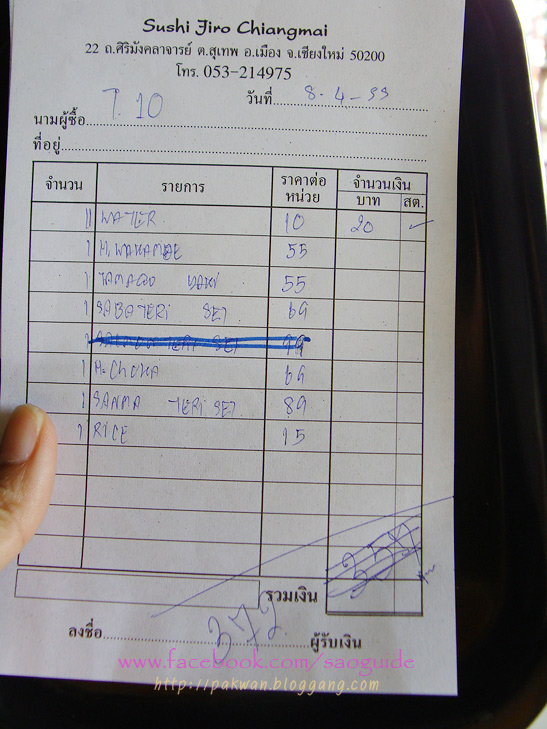 Sushi Jiro Chiangmai
22 ถ.ศิริมังคลาจารย์ ต.สุเทพ อ.เมือง จ.เชียงใหม่ 50200
โทร. 053-214975
วันที่ 8-4-55
T. 10
นามผู้ซื้อ
ที่อยู่
จำนวน รายการ ราคาต่อหน่วย จำนวนเงิน
บาท สต.
11 WATER 10 20
1 H.WAKAME 55
1 TAMAGO YAKI 55
1 SABA TERI SET 69
1 TERI SET 99
1 69
1 SANMA TERI SET 89
1 RICE 15
รวมเงิน
372
ลงชื่อ ผู้รับเงิน
www.facebook.com/saoguide
http://pakwan.bloggang.com